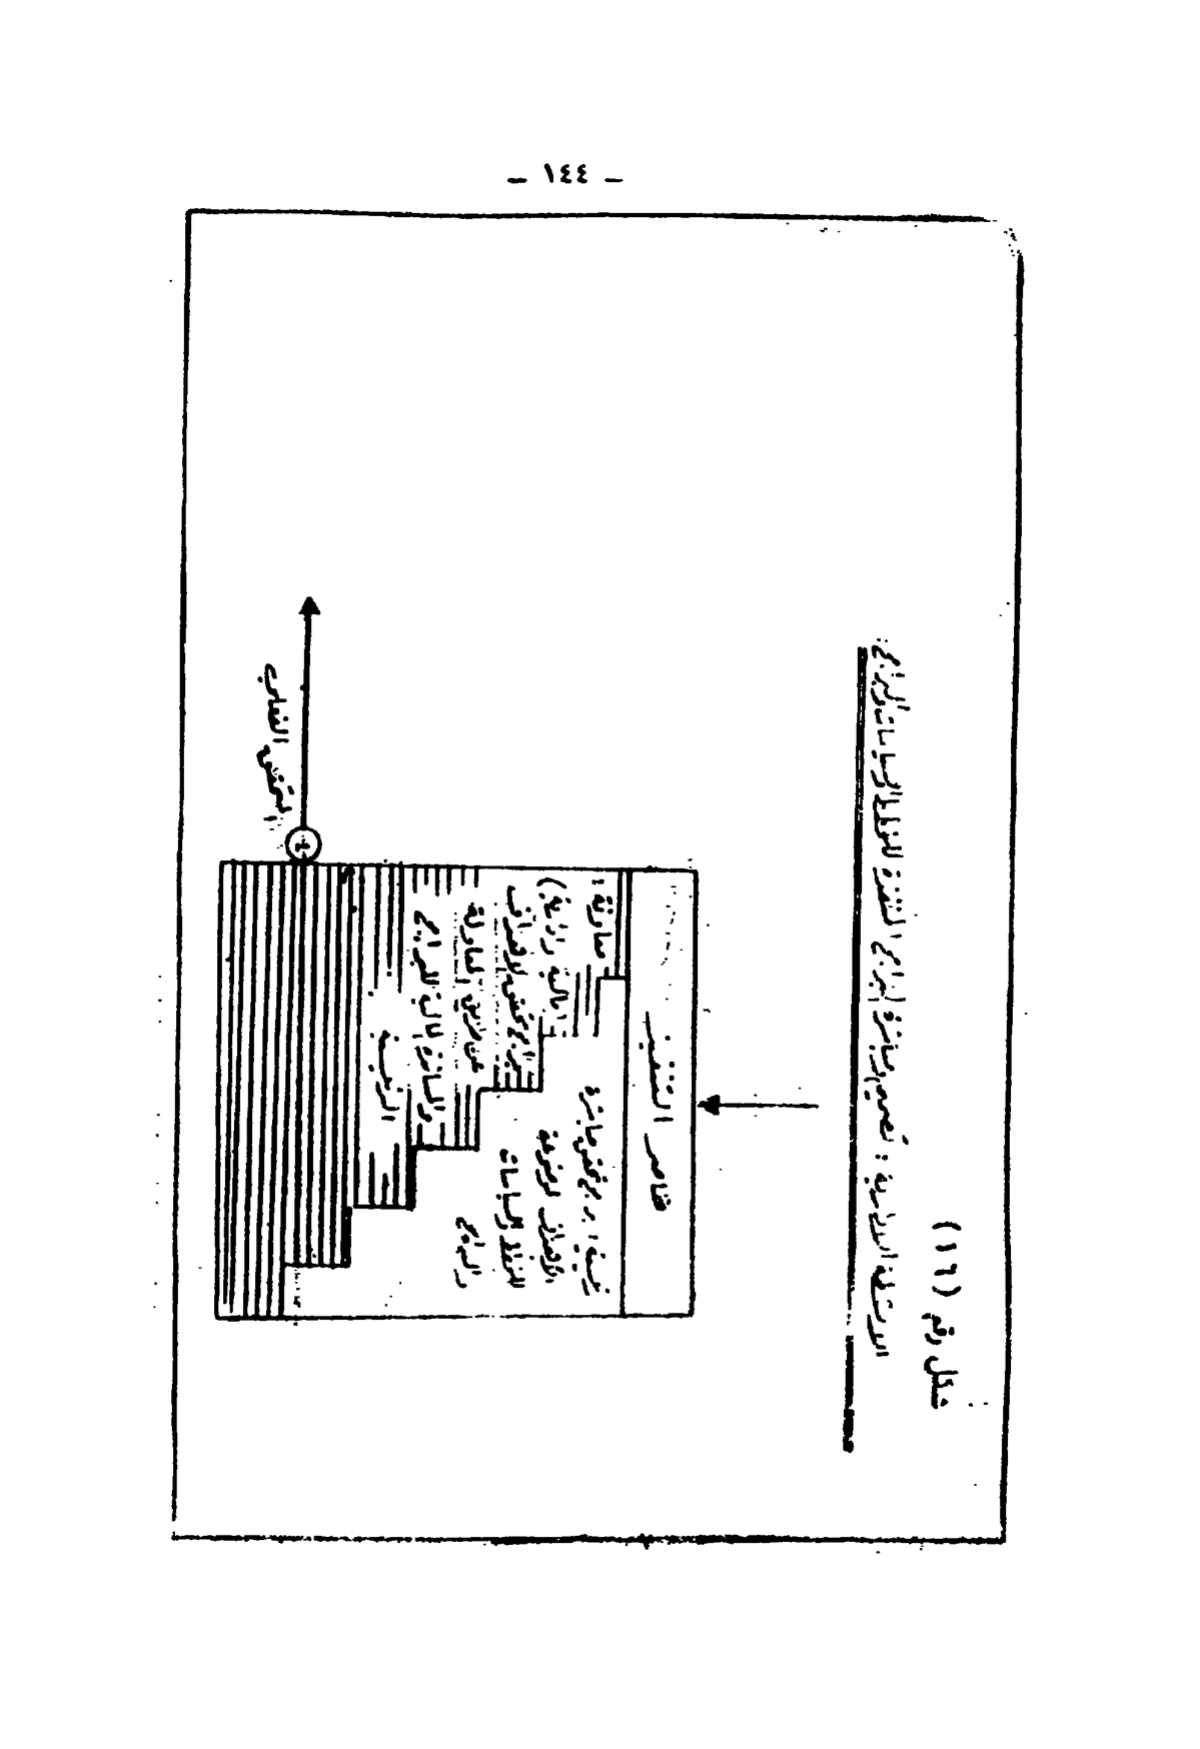 - ١٤٤ -
شكل رقم (١٦)
الانشطة الادارية : تصميم ومباشرة البرامج المنفذة للخطط والسياسات والبرامج .
عناصر التنفيذ
رئيسية : برامج تحقق مباشرة
الأهداف الموضوعة
للخطط والسياسات
والبرامج
معاونة :
( مالية وادارية )
برامج تحقق الاهداف
عن طريق المعاونة
والمساندة المالية للبرامج
الرئيسية
التحقق الفعلي